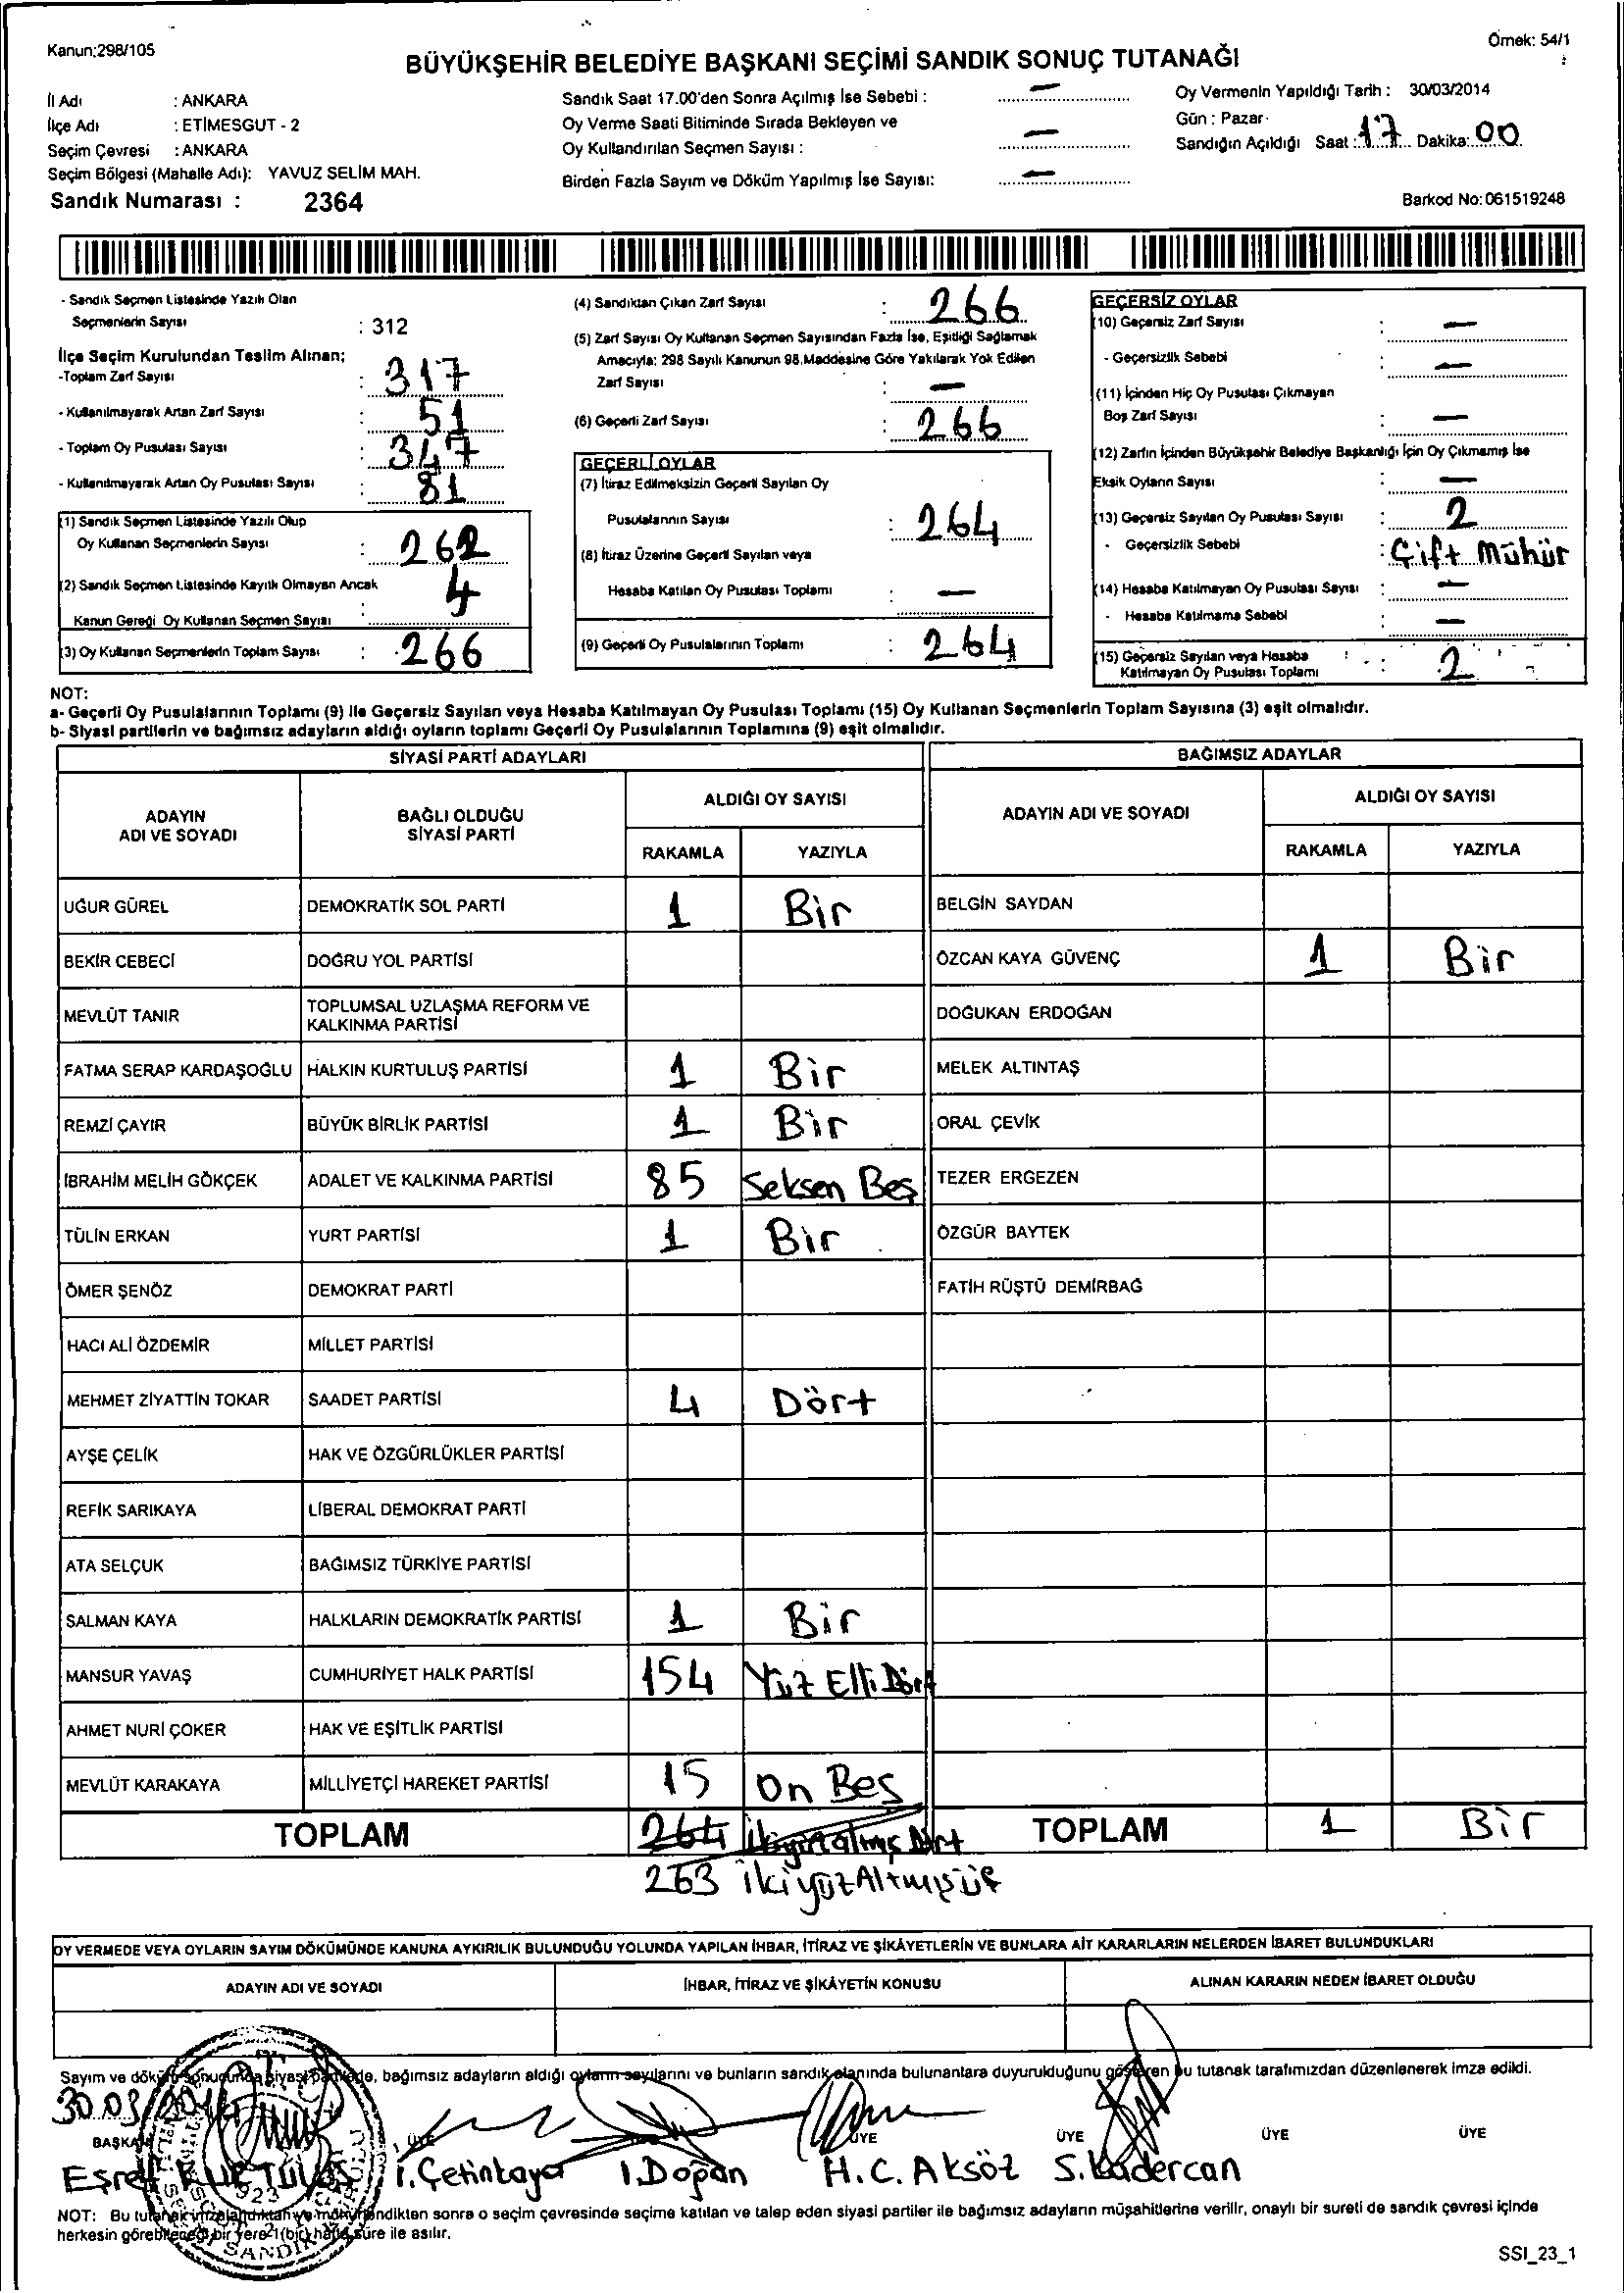 Kanun:298/105
Örnek: 54/1
BÜYÜKŞEHİR BELEDİYE BAŞKANI SEÇİMİ SANDIK SONUÇ TUTANAĞI
İl Adı : ANKARA
İlçe Adı : ETİMESGUT - 2
Seçim Çevresi : ANKARA
Seçim Bölgesi (Mahalle Adı): YAVUZ SELİM MAH.
Sandık Numarası : 2364
Sandık Saat 17.00'den Sonra Açılmış İse Sebebi : —
Oy Verme Saati Bitiminde Sırada Bekleyen ve
Oy Kullandırılan Seçmen Sayısı : —
Birden Fazla Sayım ve Döküm Yapılmış İse Sayısı: —
Oy Vermenin Yapıldığı Tarih : 30/03/2014
Gün : Pazar
Sandığın Açıldığı Saat : 17 Dakika: 00
Barkod No: 061519248
- Sandık Seçmen Listesinde Yazılı Olan
Seçmenlerin Sayısı : 312
İlçe Seçim Kurulundan Teslim Alınan;
-Toplam Zarf Sayısı : 317
- Kullanılmayarak Artan Zarf Sayısı : 51
- Toplam Oy Pusulası Sayısı : 347
- Kullanılmayarak Artan Oy Pusulası Sayısı : 81
(1) Sandık Seçmen Listesinde Yazılı Olup
Oy Kullanan Seçmenlerin Sayısı : 262
(2) Sandık Seçmen Listesinde Kayıtlı Olmayan Ancak
Kanun Gereği Oy Kullanan Seçmen Sayısı : 4
(3) Oy Kullanan Seçmenlerin Toplam Sayısı : 266
(4) Sandıktan Çıkan Zarf Sayısı : 266
(5) Zarf Sayısı Oy Kullanan Seçmen Sayısından Fazla İse, Eşitliği Sağlamak
Amacıyla; 298 Sayılı Kanunun 98.Maddesine Göre Yakılarak Yok Edilen
Zarf Sayısı : —
(6) Geçerli Zarf Sayısı : 266
GEÇERLİ OYLAR
(7) İtiraz Edilmeksizin Geçerli Sayılan Oy
Pusulalarının Sayısı : 264
(8) İtiraz Üzerine Geçerli Sayılan veya
Hesaba Katılan Oy Pusulası Toplamı : —
(9) Geçerli Oy Pusulalarının Toplamı : 264
GEÇERSİZ OYLAR
(10) Geçersiz Zarf Sayısı : —
- Geçersizlik Sebebi : —
(11) İçinden Hiç Oy Pusulası Çıkmayan
Boş Zarf Sayısı : —
(12) Zarfın İçinden Büyükşehir Belediye Başkanlığı İçin Oy Çıkmamış İse
Eksik Oyların Sayısı : —
(13) Geçersiz Sayılan Oy Pusulası Sayısı : 2
- Geçersizlik Sebebi : Çift Mühür
(14) Hesaba Katılmayan Oy Pusulası Sayısı : —
- Hesaba Katılmama Sebebi : —
(15) Geçersiz Sayılan veya Hesaba
Katılmayan Oy Pusulası Toplamı : 2
NOT:
a- Geçerli Oy Pusulalarının Toplamı (9) ile Geçersiz Sayılan veya Hesaba Katılmayan Oy Pusulası Toplamı (15) Oy Kullanan Seçmenlerin Toplam Sayısına (3) eşit olmalıdır.
b- Siyasi partilerin ve bağımsız adayların aldığı oyların toplamı Geçerli Oy Pusulalarının Toplamına (9) eşit olmalıdır.
SİYASİ PARTİ ADAYLARI
ADAYIN
ADI VE SOYADI
BAĞLI OLDUĞU
SİYASİ PARTİ
ALDIĞI OY SAYISI
RAKAMLA YAZIYLA
UĞUR GÜREL DEMOKRATİK SOL PARTİ 1 Bir
BEKİR CEBECİ DOĞRU YOL PARTİSİ
MEVLÜT TANIR TOPLUMSAL UZLAŞMA REFORM VE
KALKINMA PARTİSİ
FATMA SERAP KARDAŞOĞLU HALKIN KURTULUŞ PARTİSİ 1 Bir
REMZİ ÇAYIR BÜYÜK BİRLİK PARTİSİ 1 Bir
İBRAHİM MELİH GÖKÇEK ADALET VE KALKINMA PARTİSİ 85 Seksen Beş
TÜLİN ERKAN YURT PARTİSİ 1 Bir
ÖMER ŞENÖZ DEMOKRAT PARTİ
HACI ALİ ÖZDEMİR MİLLET PARTİSİ
MEHMET ZİYATTİN TOKAR SAADET PARTİSİ 4 Dört
AYŞE ÇELİK HAK VE ÖZGÜRLÜKLER PARTİSİ
REFİK SARIKAYA LİBERAL DEMOKRAT PARTİ
ATA SELÇUK BAĞIMSIZ TÜRKİYE PARTİSİ
SALMAN KAYA HALKLARIN DEMOKRATİK PARTİSİ 1 Bir
MANSUR YAVAŞ CUMHURİYET HALK PARTİSİ 154 Yüz Elli Dört
AHMET NURİ ÇOKER HAK VE EŞİTLİK PARTİSİ
MEVLÜT KARAKAYA MİLLİYETÇİ HAREKET PARTİSİ 15 On Beş
TOPLAM 264 İkiyüzaltmış Dört
263 ikiyüzAltmışüç
BAĞIMSIZ ADAYLAR
ADAYIN ADI VE SOYADI
ALDIĞI OY SAYISI
RAKAMLA YAZIYLA
BELGİN SAYDAN
ÖZCAN KAYA GÜVENÇ 1 Bir
DOĞUKAN ERDOĞAN
MELEK ALTINTAŞ
ORAL ÇEVİK
TEZER ERGEZEN
ÖZGÜR BAYTEK
FATİH RÜŞTÜ DEMİRBAĞ
TOPLAM 1 Bir
OY VERMEDE VEYA OYLARIN SAYIM DÖKÜMÜNDE KANUNA AYKIRILIK BULUNDUĞU YOLUNDA YAPILAN İHBAR, İTİRAZ VE ŞİKÂYETLERİN VE BUNLARA AİT KARARLARIN NELERDEN İBARET BULUNDUKLARI
ADAYIN ADI VE SOYADI
İHBAR, İTİRAZ VE ŞİKÂYETİN KONUSU
ALINAN KARARIN NEDEN İBARET OLDUĞU
Sayım ve döküm sonucunda siyasi partilerle, bağımsız adayların aldığı oyların sayılarını ve bunların sandık alanında bulunanlara duyurulduğunu gösteren bu tutanak tarafımızdan düzenlenerek imza edildi.
30.03.2014
BAŞKAN ÜYE ÜYE ÜYE ÜYE ÜYE
Eşref İ.Çetinkaya İ.Doğan H.C.Aksöz S.Kadercan
NOT: Bu tutanak imzalandıktan ve mühürlendikten sonra o seçim çevresinde seçime katılan ve talep eden siyasi partiler ile bağımsız adayların müşahitlerine verilir, onaylı bir sureti de sandık çevresi içinde
herkesin görebileceği bir yere 1(bir) hafta süre ile asılır.
SSI_23_1